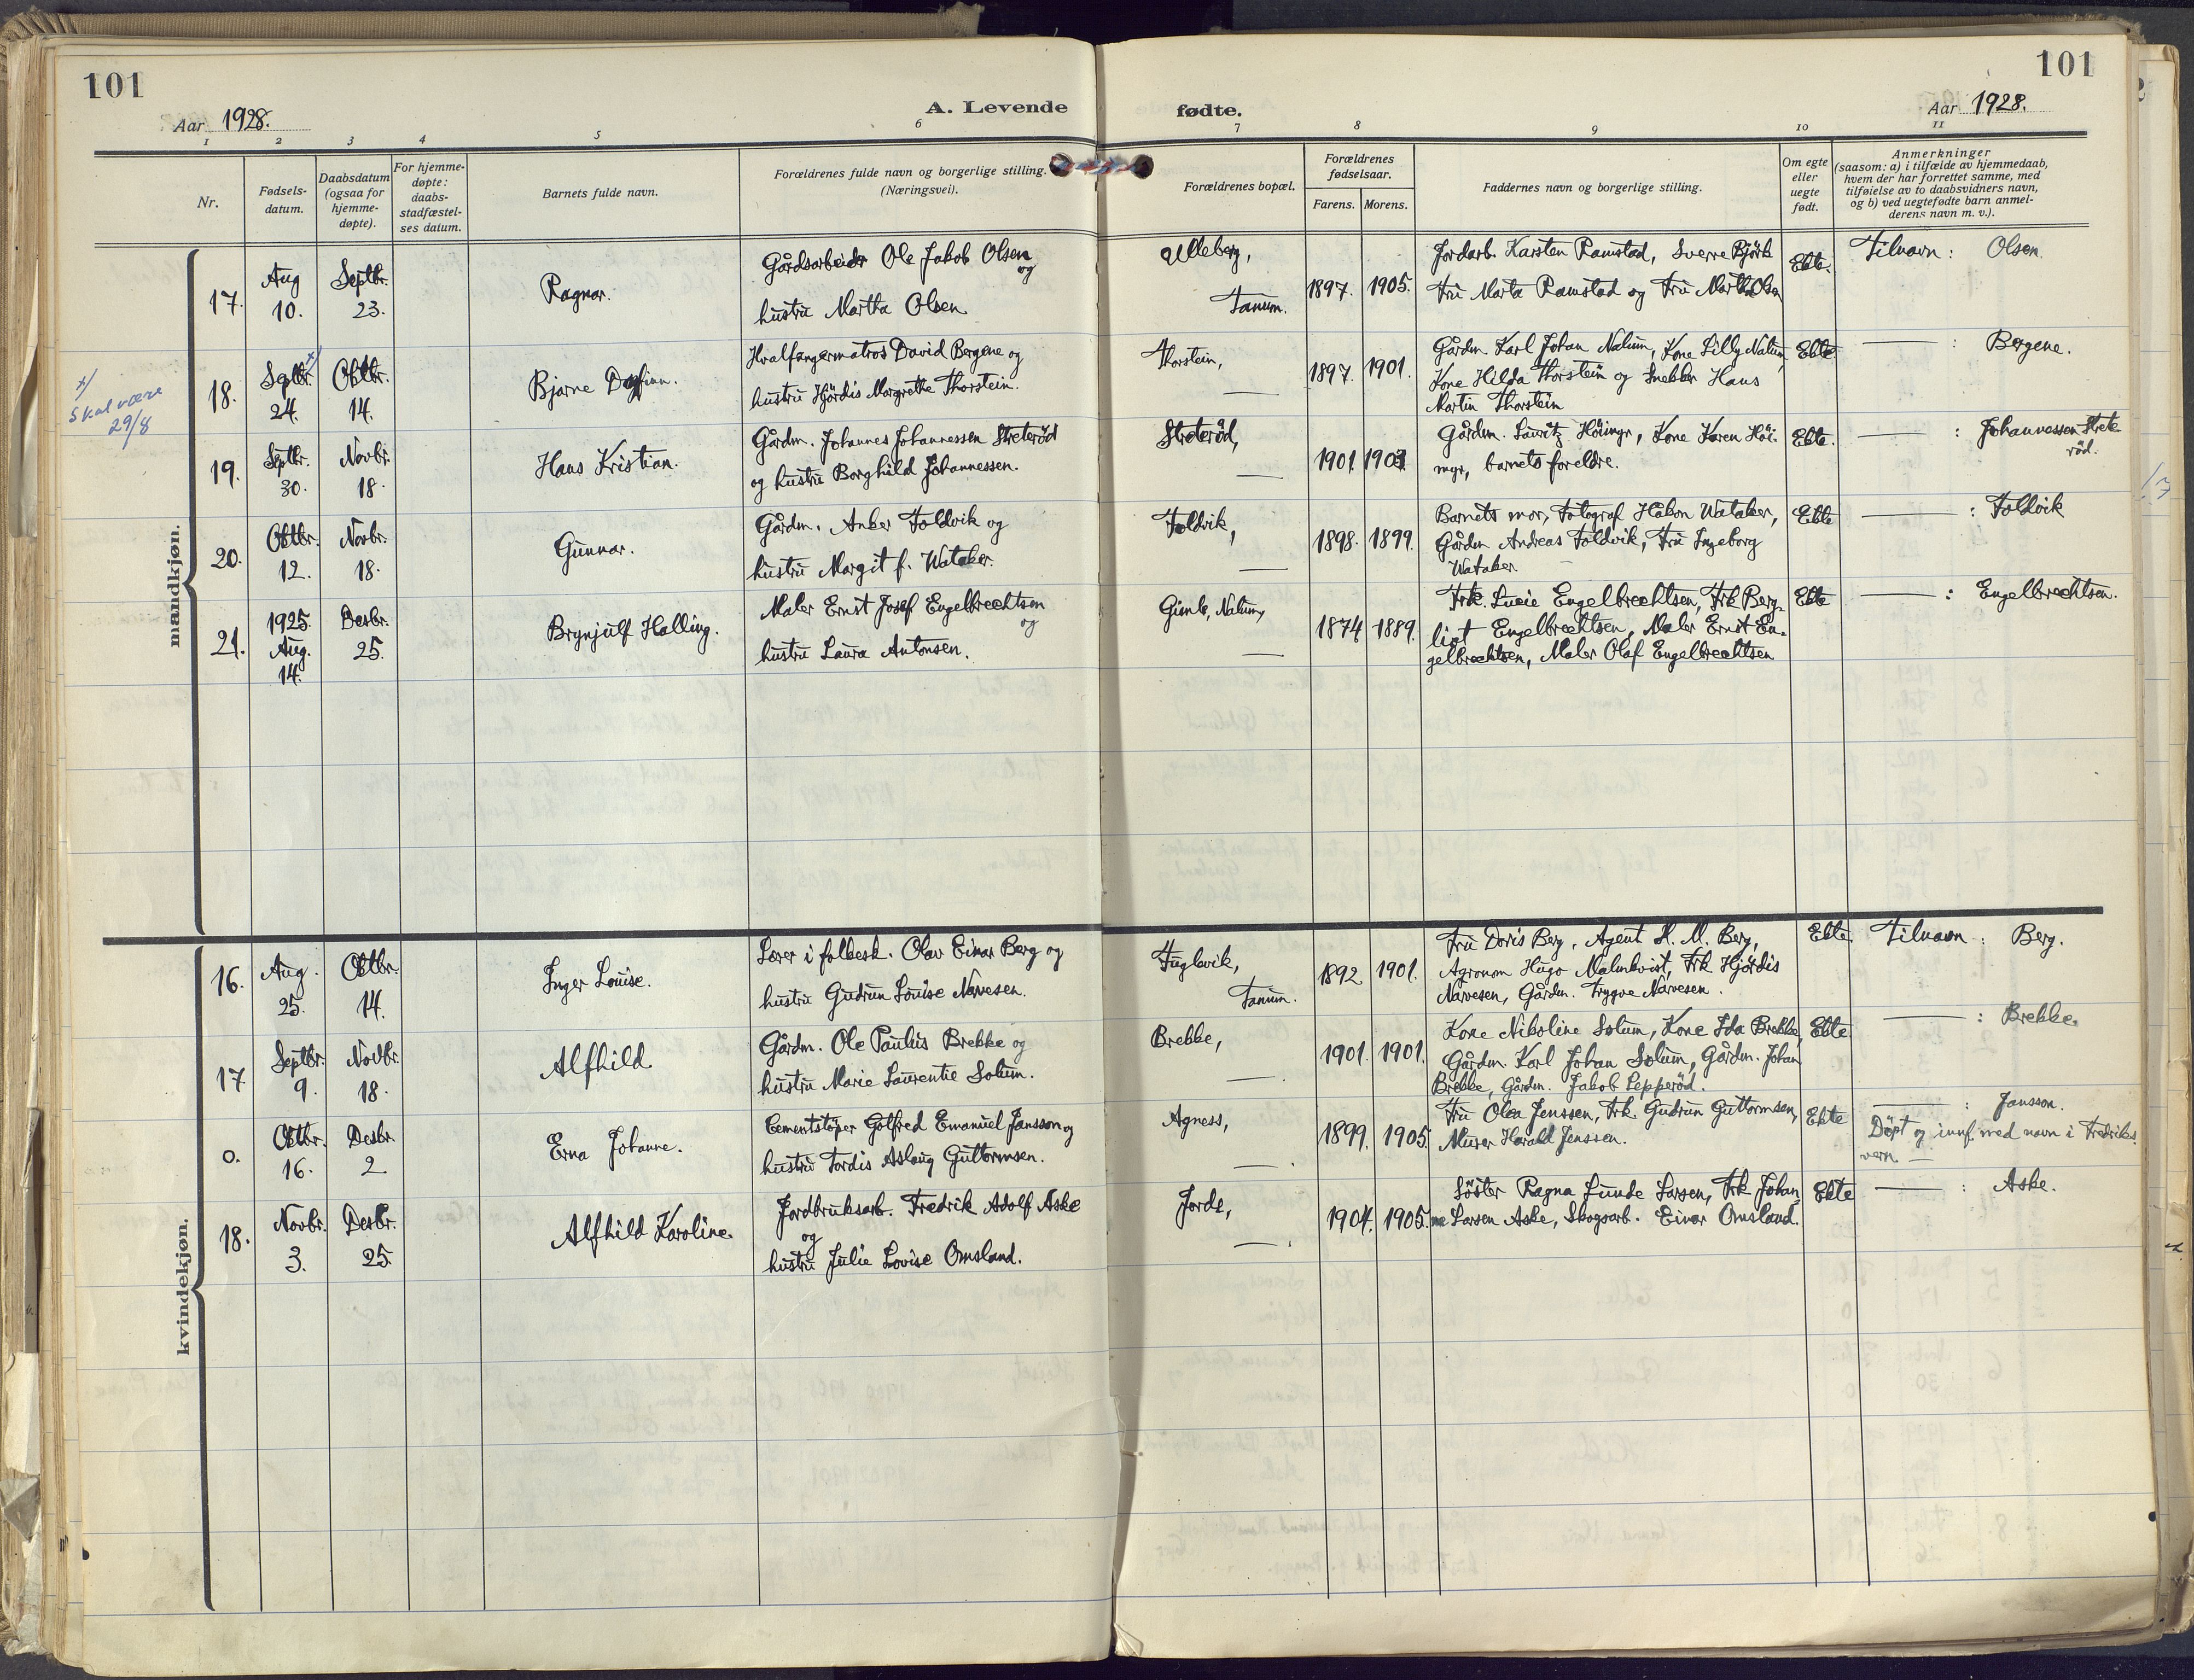 101
101
Aar 1928.
A. Levende
fødte.
Aar 1928.
1
2
3
4
5
6
7
8
9
10
11
Nr.
Fødsels-
datum.
Daabsdatum
(ogsaa for
hjemme-
døpte).
For hjemme-
døpte:
daabs-
stadfæstel-
ses datum.
Barnets fulde navn.
Forældrenes fulde navn og borgerlige stilling.
(Næringsvei).
Forældrenes bopæl.
Forældrenes
fødselsaar.
Farens.
Morens.
Faddernes navn og borgerlige stilling.
Om egte
eller
uegte
født.
Anmerkninger
(saasom: a) i tilfælde av hjemmedaab,
hvem der har forrettet samme, med
tilføielse av to daabsvidners navn,
og b) ved uegtefødte barn anmel-
derens navn m. v.).
mandkjøn.
17.
Aug
10.
Septbr.
23.
Ragnar.
Gårdsarbeider Ole Jakob Olsen
og
hustru Martha Olsen.
Ulleberg,
Tanum.
1897.
1905.
Jordarb. Karsten Ramstad, Sverre Bjørk
Fru Marta Ramstad og Fru Martha Olsen
Ekte.
Tilnavn: Olsen.
x/
Skal være
29/8
18.
Septbr. x/
24.
Oktbr.
14.
Bjarne Dagfinn.
Hvalfangermatros David Bergene og
hustru Hjördis Margrethe Thorstein.
Thorstein,
—
1897.
1901.
Gårdm. Karl Johan Nalum, Kone Lilly Nalum,
Kone Hilda Thorstein og Snekker Hans
Martin Thorstein
Ekte
— : Bergene.
19.
Septbr.
30.
Novbr.
18.
Hans Kristian.
Gårdm. Johannes Johannessen Streteröd
og hustru Borghild Johannessen.
Streteröd,
—
1901.
1903.
Gårdm. Lauritz Höimyr, Kone Karen Höi-
myr, barnets foreldre.
Ekte.
— : Johannessen Strete-
röd.
20.
Oktbr.
12.
Novbr.
18.
Gunnar.
Gårdm. Anker Foldvik og
hustru Margit f. Wataker.
Foldvik,
—
1898.
1899.
Barnets mor, Fotograf Håkon Wataker,
Gårdm Andreas Foldvik, Fru Ingeborg
Wataker.
Ekte
— : Foldvik
21.
1925.
Aug.
14.
Desbr.
25.
Brynjulf Halling.
Maler Ernst Josef Engelbrechtsen
og
hustru Laura Antonsen.
Gimle, Nalum,
—
1874
1889.
Frk. Lucie Engelbrechtsen, Frk Berg-
liot Engelbrechtsen, Maler Ernst En-
gelbrechtsen, Maler Olaf Engelbrechtsen
Ekte
— : Engelbrechtsen.
kvindekjøn.
16.
Aug.
25.
Oktbr.
14.
Inger Louise.
Lærer i folkesk. Olav Einar Berg og
hustru Gudrun Louise Narvesen.
Fuglevik,
Tanum.
1892
1901.
Fru Doris Berg, Agent H. M. Berg,
Agronom Hugo Malmkvist, Frk Hjördis
Narvesen, Gårdm. Trygve Narvesen.
Ekte.
Tilnavn: Berg.
17.
Septbr.
9.
Novbr.
18.
Alfhild
Gårdm. Ole Paulius Brekke og
hustru Marie Laurentie Solum.
Brekke,
—
1901.
1901.
Kone Nikoline Solum, Kone Ida Brekke,
Gårdm. Karl Johan Solum, Gårdm. Johan
Brekke, Gårdm. Jakob Lepperöd.
Ekte.
— : Brekke.
0.
Oktbr.
16.
Desbr
2
Erna Johanne.
Cementstöper Gotfred Emanuel Jansson og
hustru Tordis Aslaug Guttormsen.
Agness,
—
1899.
1905.
Fru Olea Jenssen, Frk. Gudrun Guttormsen,
Murer Harald Jenssen.
Ekte
— : Jansson.
Döpt og innf. med navn i Fredriks-
vern. —
18.
Novbr.
3.
Desbr.
25.
Alfhild Karoline.
Jordbruksarb. Fredrik Adolf Aske
og
hustru Julie Lovise Omsland.
Jorde,
—
1904.
1905.
Söster Ragna Lunde Larsen, Frk Johan-
ne Larsen Aske, Skogsarb. Einar Omsland.
Ekte
— : Aske.